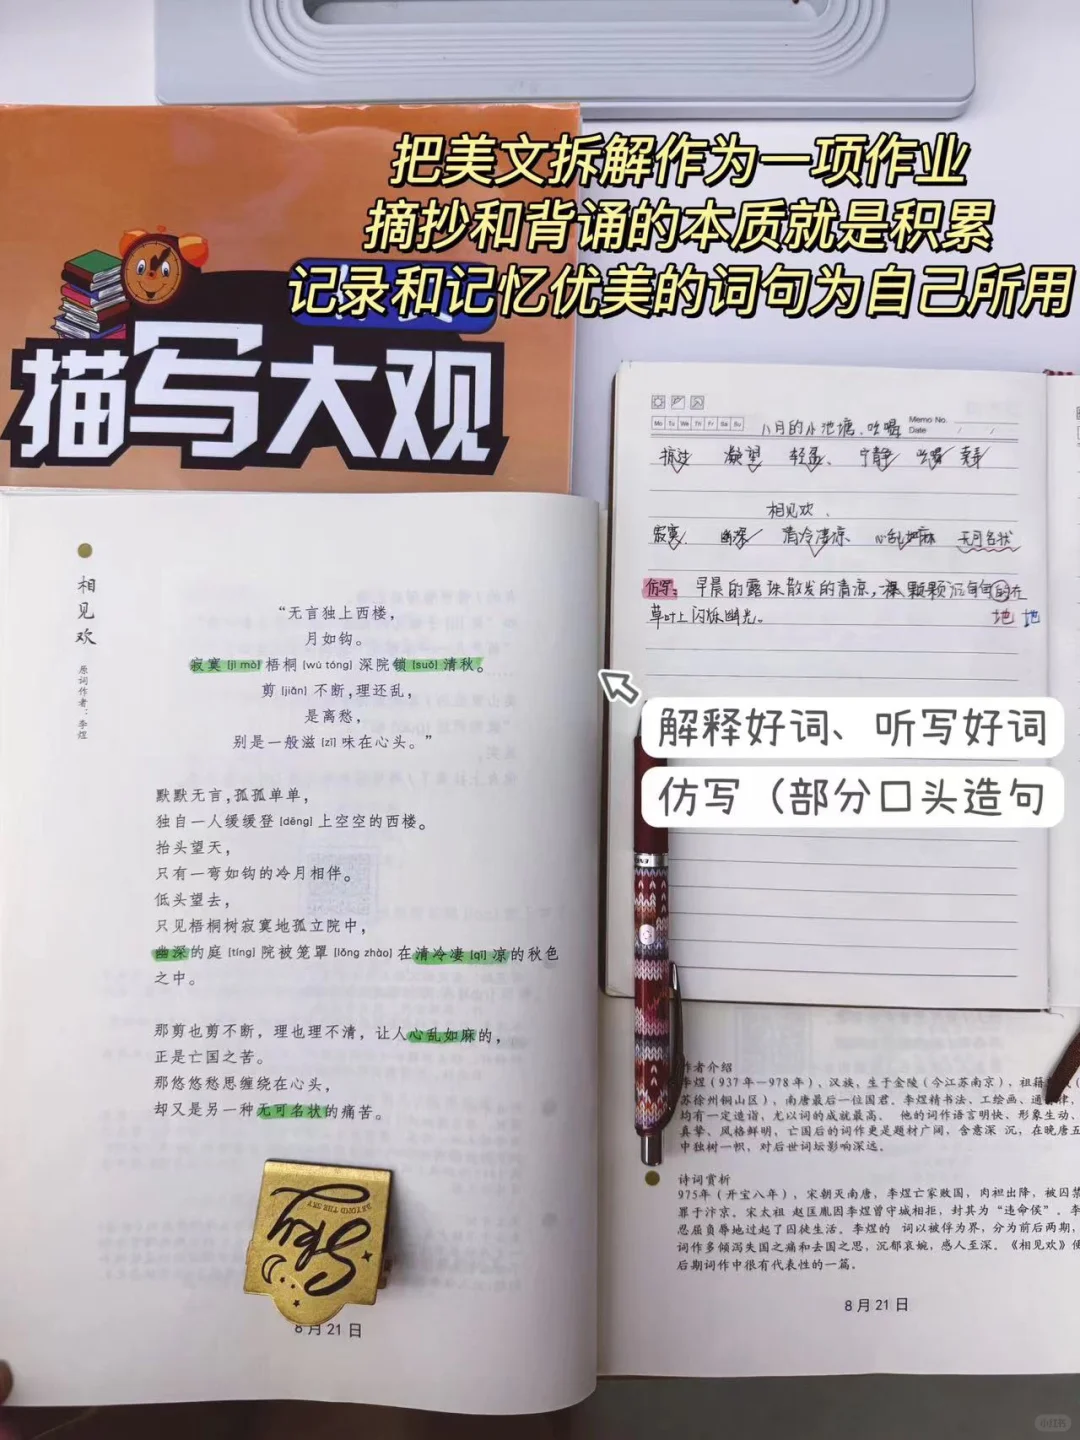 把美文拆解作为一项作业
摘抄和背诵的本质就是积累
记录和记忆优美的词句为自己所用
描写大观
相见欢
原词作者：李煜
“无言独上西楼，
月如钩。
寂寞[jì mò]梧桐[wú tóng]深院锁[suǒ]清秋。
剪[jiǎn]不断，理还乱，
是离愁，
别是一般滋[zī]味在心头。”
默默无言，孤孤单单，
独自一人缓缓登[dēng]上空空的西楼。
抬头望天，
只有一弯如钩的冷月相伴。
低头望去，
只见梧桐树寂寞地孤立院中，
幽深的庭[tíng]院被笼罩[lǒng zhào]在清冷凄[qī]凉的秋色
之中。
那剪也剪不断，理也理不清，让人心乱如麻的，
正是亡国之苦。
那悠悠愁思缠绕在心头，
却又是另一种无可名状的痛苦。
Sky
BEYOND THE SKY
8月21日
Mo Tu We Th Fr Sa Su
Memo No.
Date / /
八月的小池塘、吐嘴
凝望 轻盈、宁静
相见欢、
寂寞 幽深 清冷凄凉、心乱如麻 无可名状
仿写：早晨的露珠散发的清凉，颗颗沉甸甸的在
草叶上闪烁幽光。 地 地
解释好词、听写好词
仿写（部分口头造句
作者介绍
李煜（937年—978年），汉族，生于金陵（今江苏南京），祖籍
苏徐州铜山区），南唐最后一位国君。李煜精书法、工绘画、通
均有一定造诣，尤以词的成就最高。他的词作语言明快、形象生动、
真挚、风格鲜明，亡国后的词作更是题材广阔，含意深沉，在晚唐五
中独树一帜，对后世词坛影响深远。
诗词赏析
975年（开宝八年），宋朝灭南唐，李煜亡家败国，肉袒出降，被囚禁
罪于汴京。宋太祖赵匡胤因李煜曾守城相拒，封其为“违命侯”。李
忍屈负辱地过起了囚徒生活。李煜的词以被俘为界，分为前后两期，
词作多倾泻失国之痛和去国之思，沉郁哀婉，感人至深。《相见欢》便
后期词作中很有代表性的一篇。
8月21日
小红书